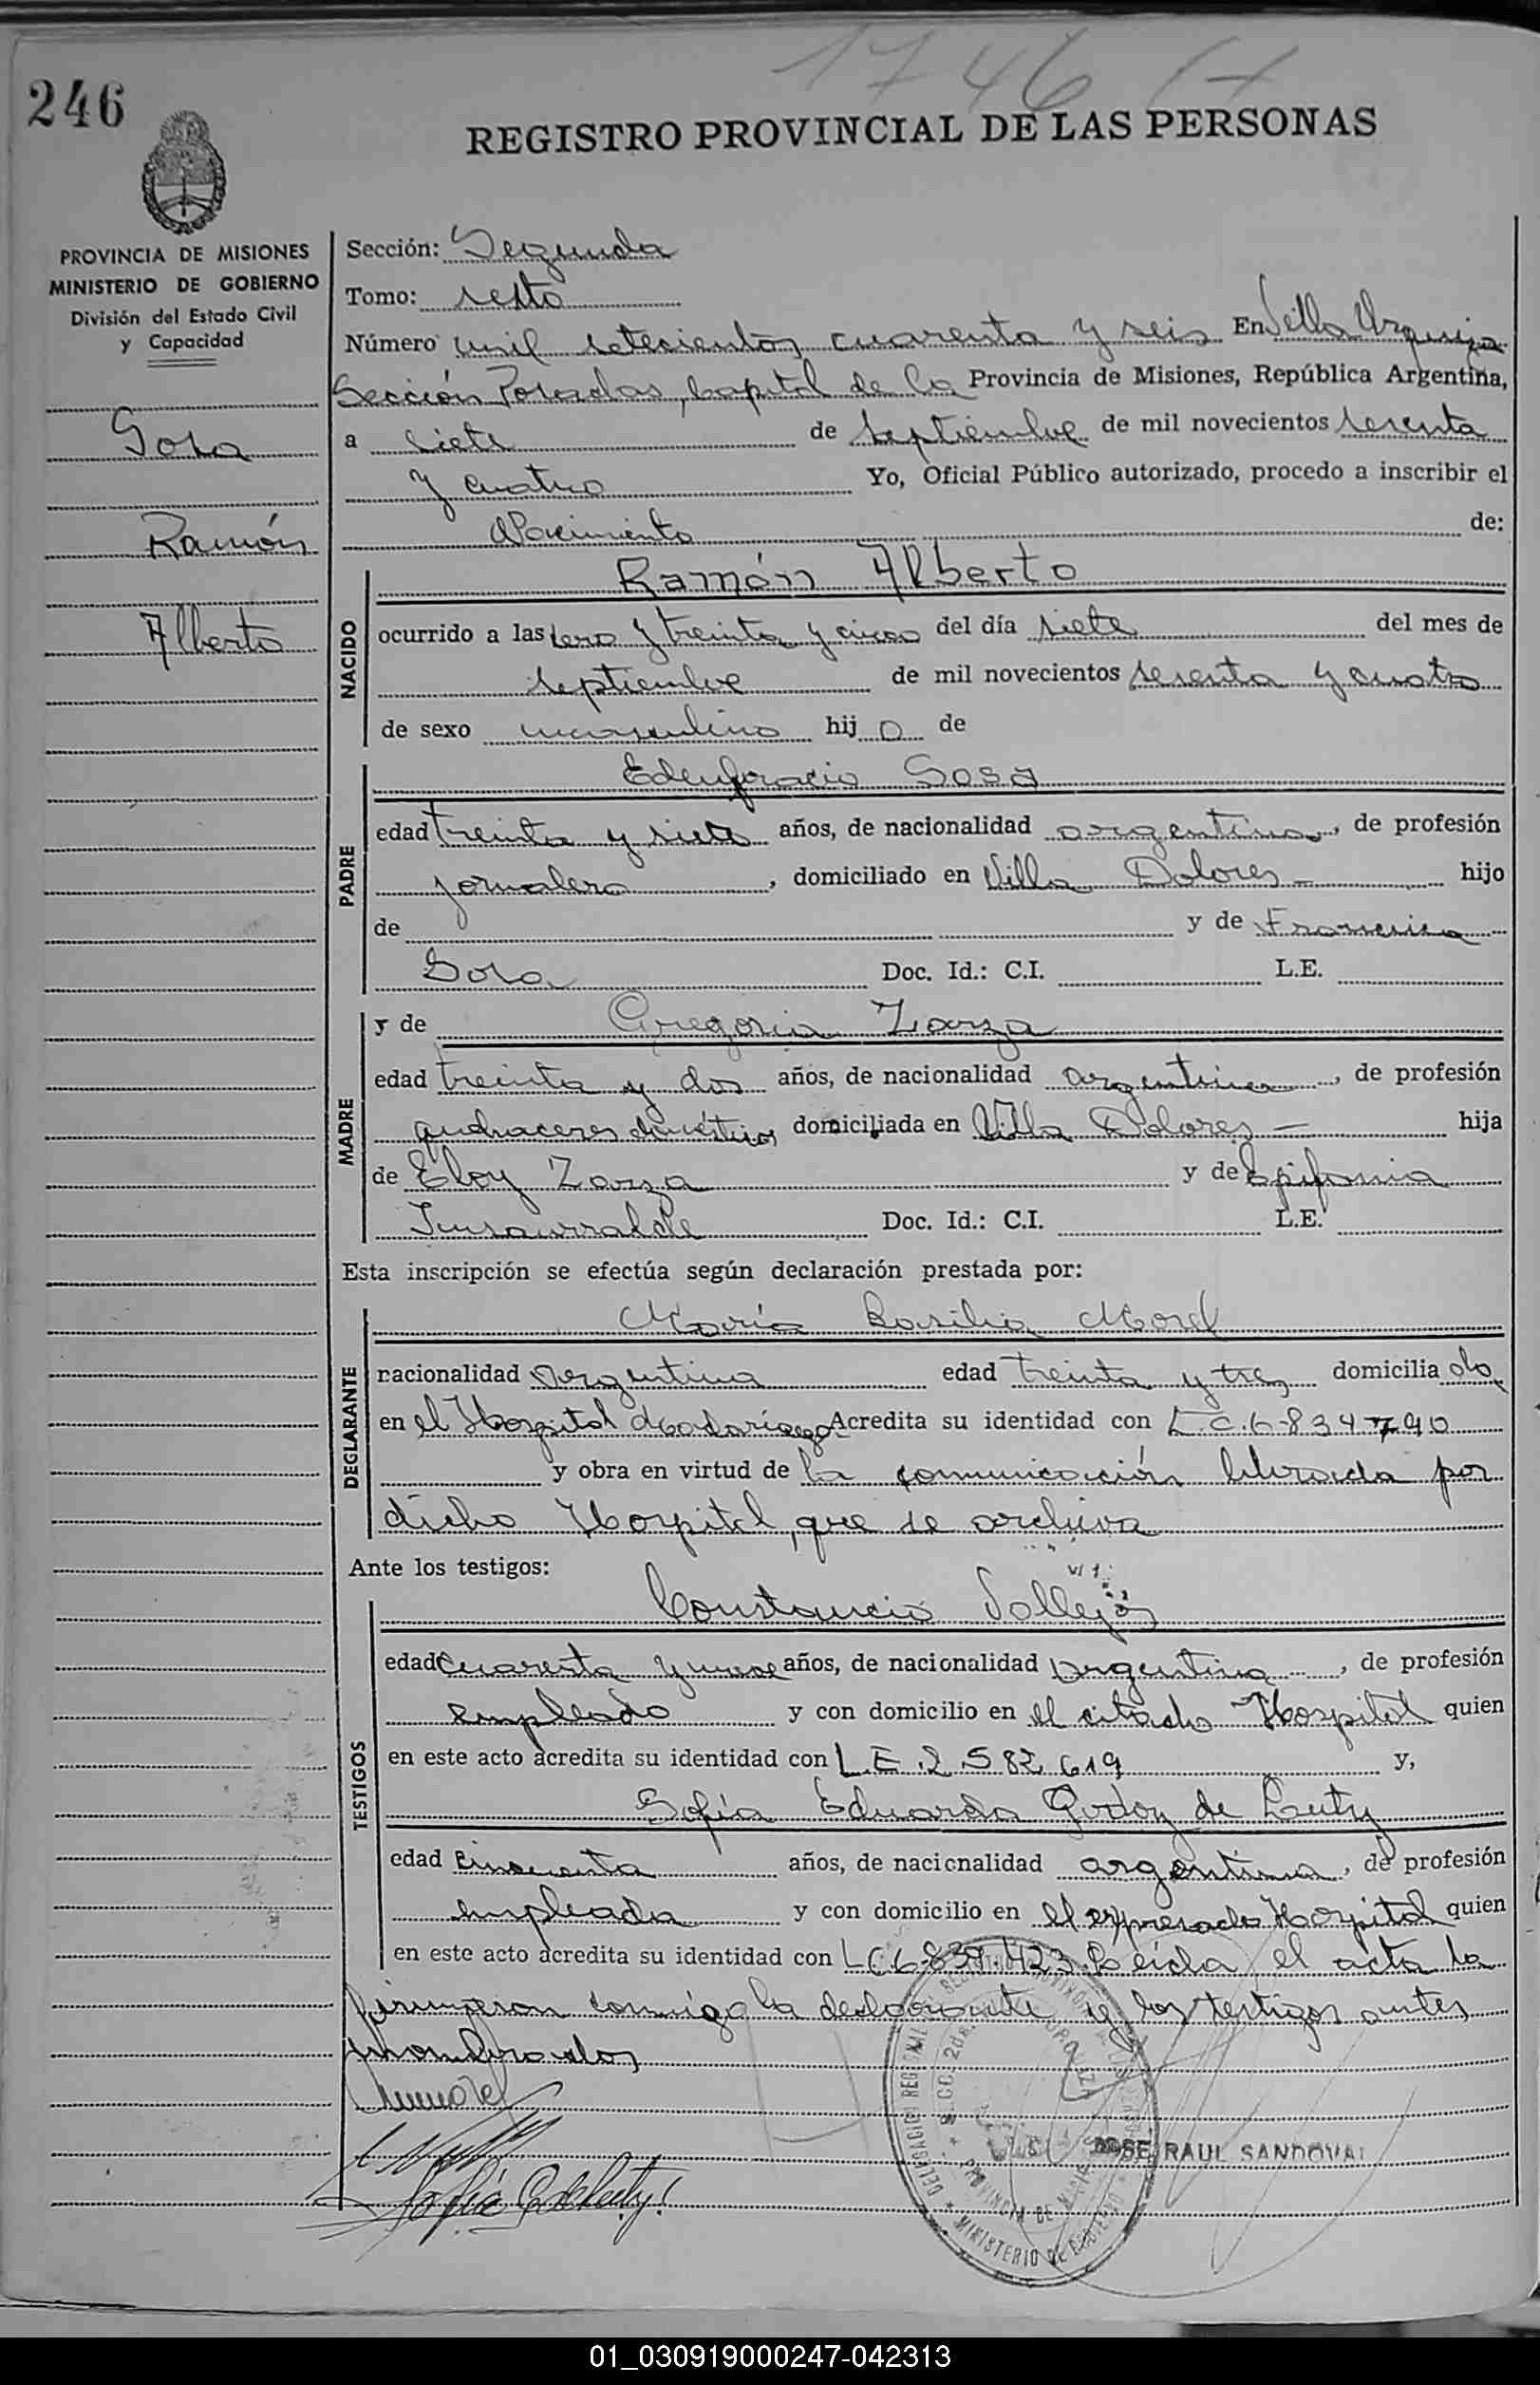 1746
246
REGISTRO PROVINCIAL DE LAS PERSONAS
PROVINCIA DE MISIONES
MINISTERIO DE GOBIERNO
División del Estado Civil
y Capacidad
Sosa
Ramón
Alberto
Sección: Segunda
Tomo: sexto
Número mil setecientos cuarenta y seis En Villa Urquiza
Sección Posadas, Capital de la Provincia de Misiones, República Argentina,
a siete de septiembre de mil novecientos sesenta
y cuatro Yo, Oficial Público autorizado, procedo a inscribir el
Nacimiento de:
NACIDO
Ramón Alberto
ocurrido a las cero y treinta y cinco del día siete del mes de
septiembre de mil novecientos sesenta y cuatro
de sexo masculino hijo de
PADRE
Sosa
edad treinta y siete años, de nacionalidad argentina, de profesión
jornalero, domiciliado en Villa Dolores — hijo
de y de Francisca
Sosa Doc. Id.: C.I. L.E.
MADRE
y de Gregoria Zarza
edad treinta y dos años, de nacionalidad argentina, de profesión
quehaceres domésticos domiciliada en Villa Dolores — hija
de Eloy Zarza y de Epifania
Insaurralde Doc. Id.: C.I. L.E.
Esta inscripción se efectúa según declaración prestada por:
DECLARANTE
María Basilia Morel
nacionalidad argentina edad treinta y tres domiciliada
en el Hospital Madariaga Acredita su identidad con L.C. 6.834.790
y obra en virtud de la comunicación librada por
dicho Hospital, que se archiva
Ante los testigos:
TESTIGOS
Constancio Vallejos
edad cuarenta y nueve años, de nacionalidad argentina, de profesión
empleado y con domicilio en el citado Hospital quien
en este acto acredita su identidad con L.E. 2.582.619 y,
Sofía Eduarda Godoy de Leuty
edad cincuenta años, de nacionalidad argentina, de profesión
empleada y con domicilio en el expresado Hospital quien
en este acto acredita su identidad con L.C. 6.839.423. Leída el acta la
firmaron conmigo la declarante y los testigos antes
nombrados
JOSE RAUL SANDOVAL
DELEGACION REGIONAL
SECC. 2da.
PROVINCIA DE MISIONES
MINISTERIO DE GOBIERNO
01_030919000247-042313